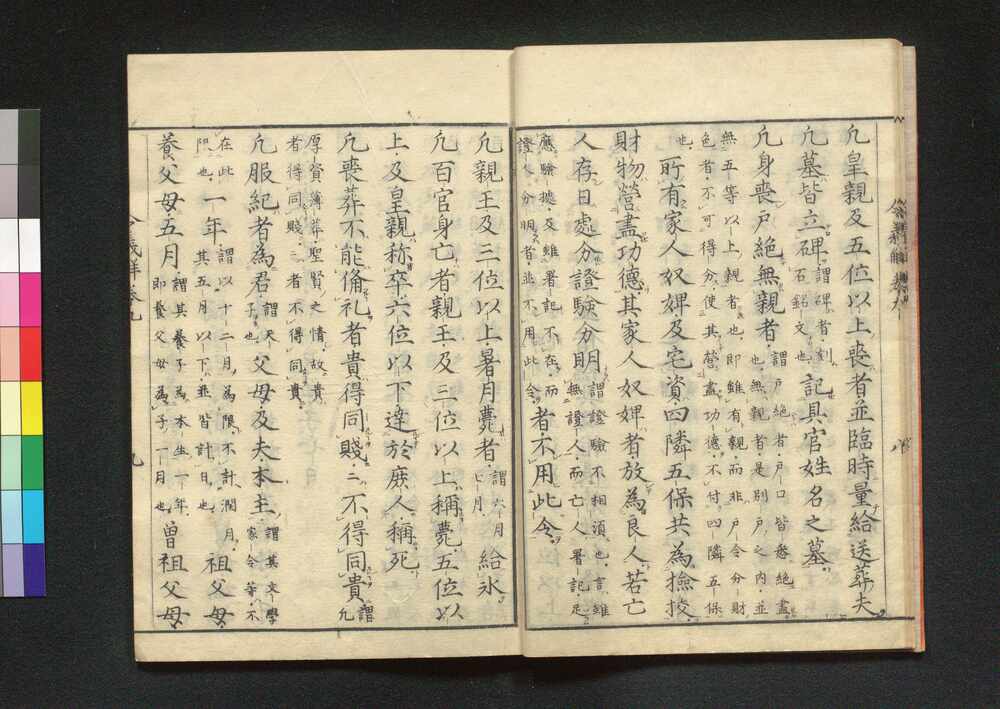 凢皇親及五位以上喪者並臨時量給送葬夫
凢墓皆立碑謂碑者刻石銘文也記具官姓名之墓
凢身喪戸絶無親者謂戸絶者戸口皆悉絶盡也無親者是別戸之内並
無五等以上親者也即雖有親而非戸令分財色者不可得分使其營盡功德不付四隣五保
也所有家人奴婢及宅資四隣五保共為撿挍
財物營盡功德其家人奴婢者放為良人若亡
人存日處分證驗分明謂證驗不相須也言雖無證人而亡人署記足
應驗據及雖署記不在而證人分明者並不用此令者不用此令
凢親王及三位以上暑月薨者謂六月七月給氷
凢百官身亡者親王及三位以上稱薨五位以
上及皇親称卒六位以下達於庶人稱死
凢喪葬不能俻礼者貴得同賤〻不得同貴謂凢
厚資薄葬聖賢之情故貴者得同賤〻者不得同貴
凢服紀者為君謂天子也父母及夫本主謂其文学家令等不
在此限也一年謂以十二月為限不計潤月其五月以下並皆計日也祖父母
養父母五月謂其養子為本生一年即養父母為子一月也曾祖父母
令義解卷九
九